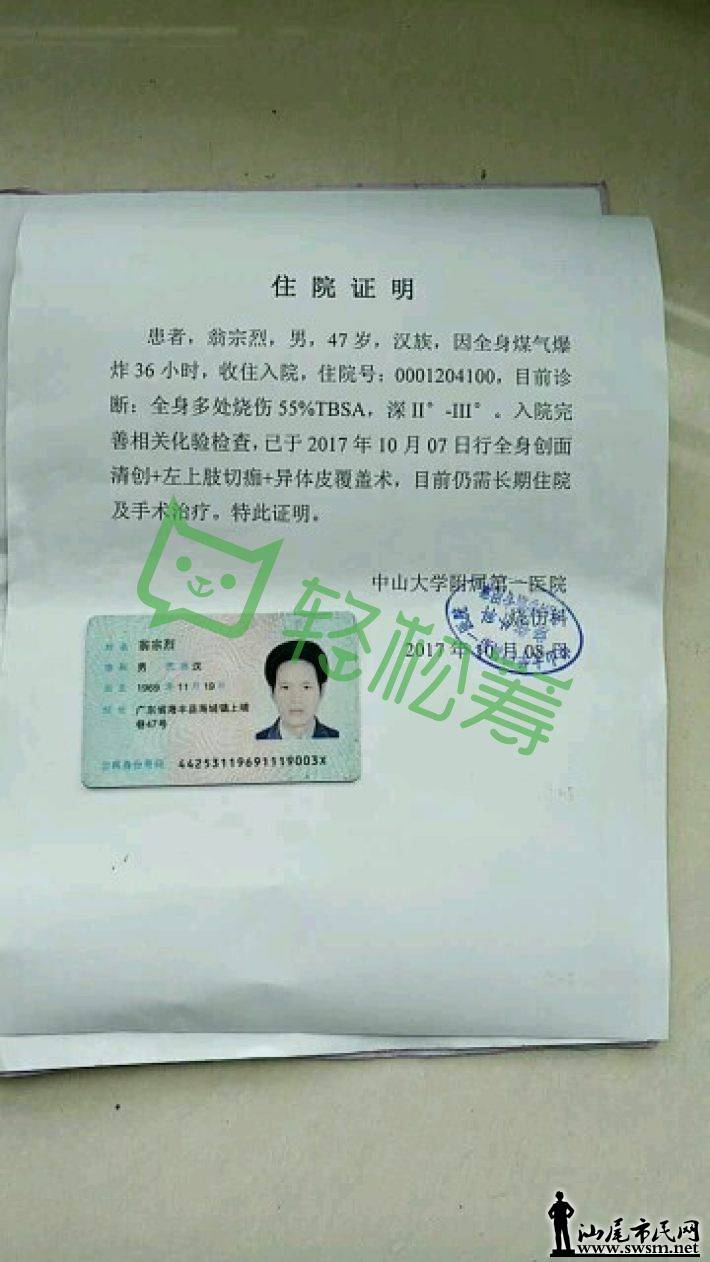 住院证明
患者，翁宗烈，男，47岁，汉族，因全身煤气爆
炸36小时，收住入院，住院号：0001204100，目前诊
断：全身多处烧伤55%TBSA，深II°-III°。入院完
善相关化验检查，已于2017年10月07日行全身创面
清创+左上肢切痂+异体皮覆盖术，目前仍需长期住院
及手术治疗。特此证明。
中山大学附属第一医院
烧伤科
2017年10月08日
轻松筹
姓名 翁宗烈
性别 男 民族 汉
出生 1969年11月19日
住址 广东省海丰县海城镇上埔
巷47号
公民身份号码 44253119691119003X
汕尾市民网
www.swsm.net